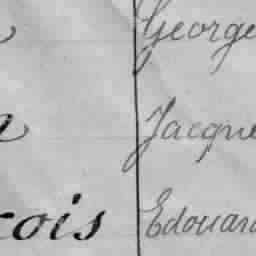 George
Jacque
cois Edouard